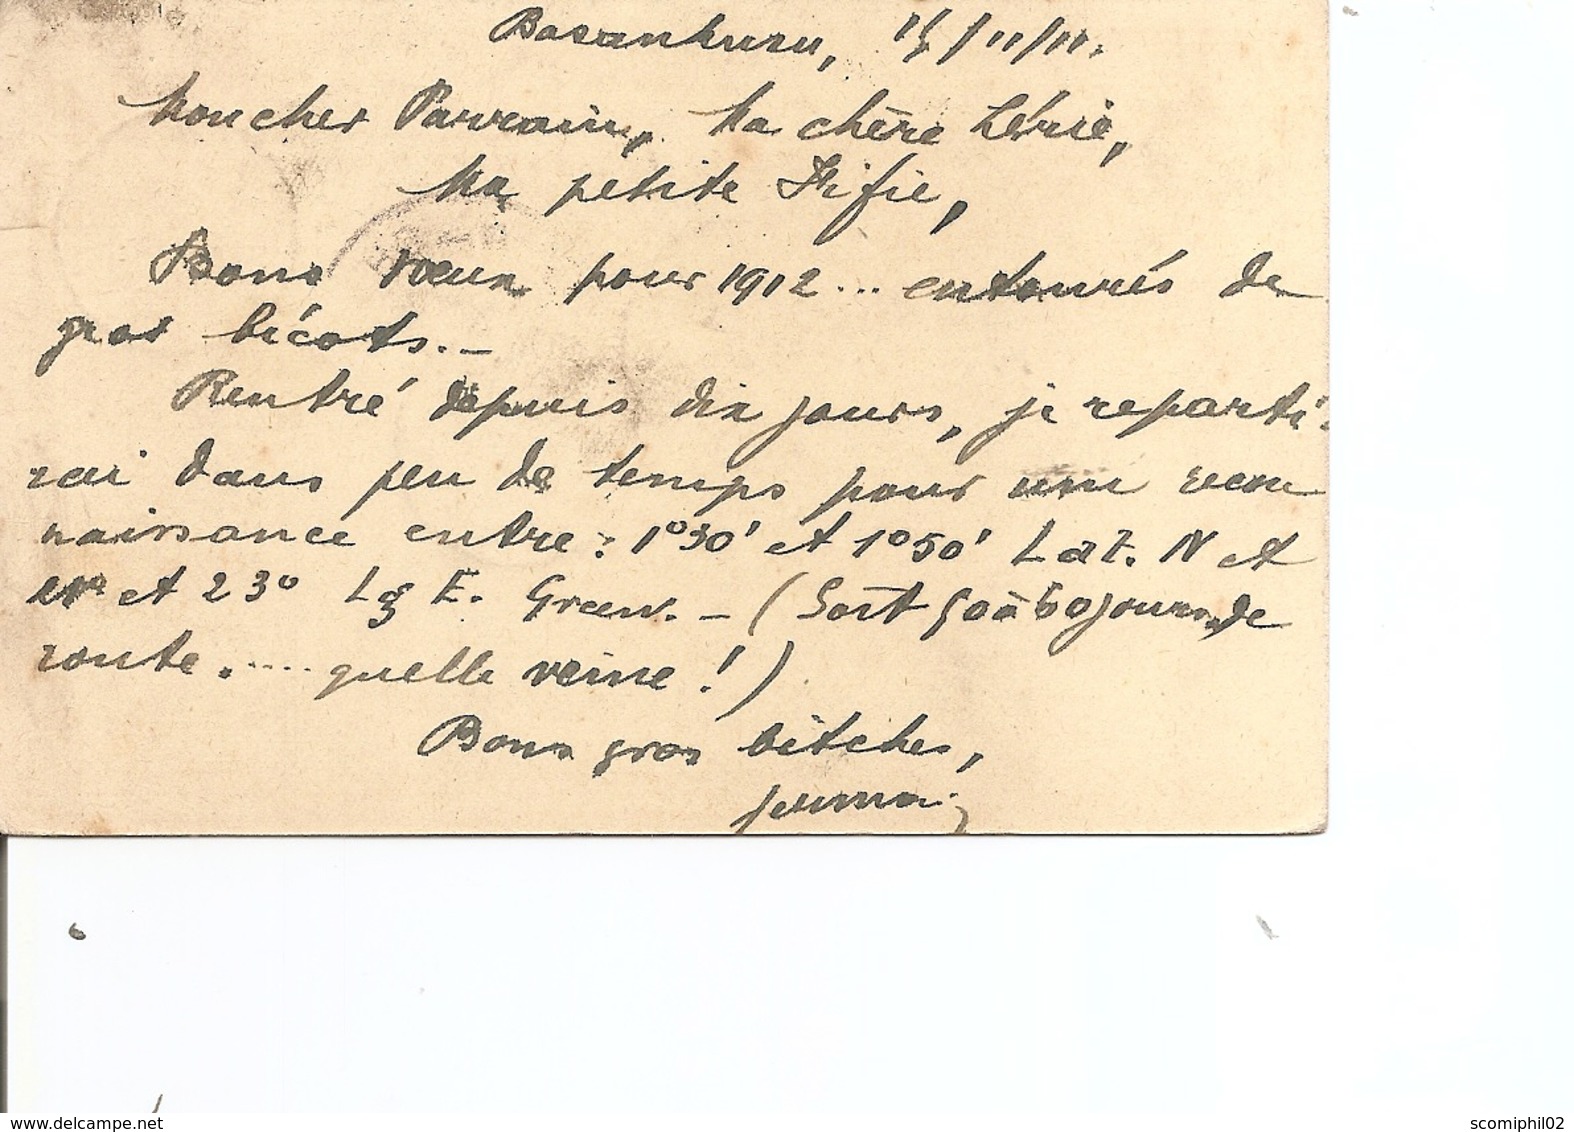 Basankusu, 15/11/11.
Mon cher Parrain, Ma chère Lérie,
Ma petite Fifie,
Bons vœux pour 1912... entourés de
gros bécots.–
Rentré depuis dix jours, je reparti-
rai dans peu de temps pour une recon
naissance entre : 1°30' et 1°50' Lat. N et
et 23° Lg E. Greenw. – (Soit 50 à 60 jours de
route..... quelle veine !)
Bons gros bitches,
scomiphil02
www.delcampe.net